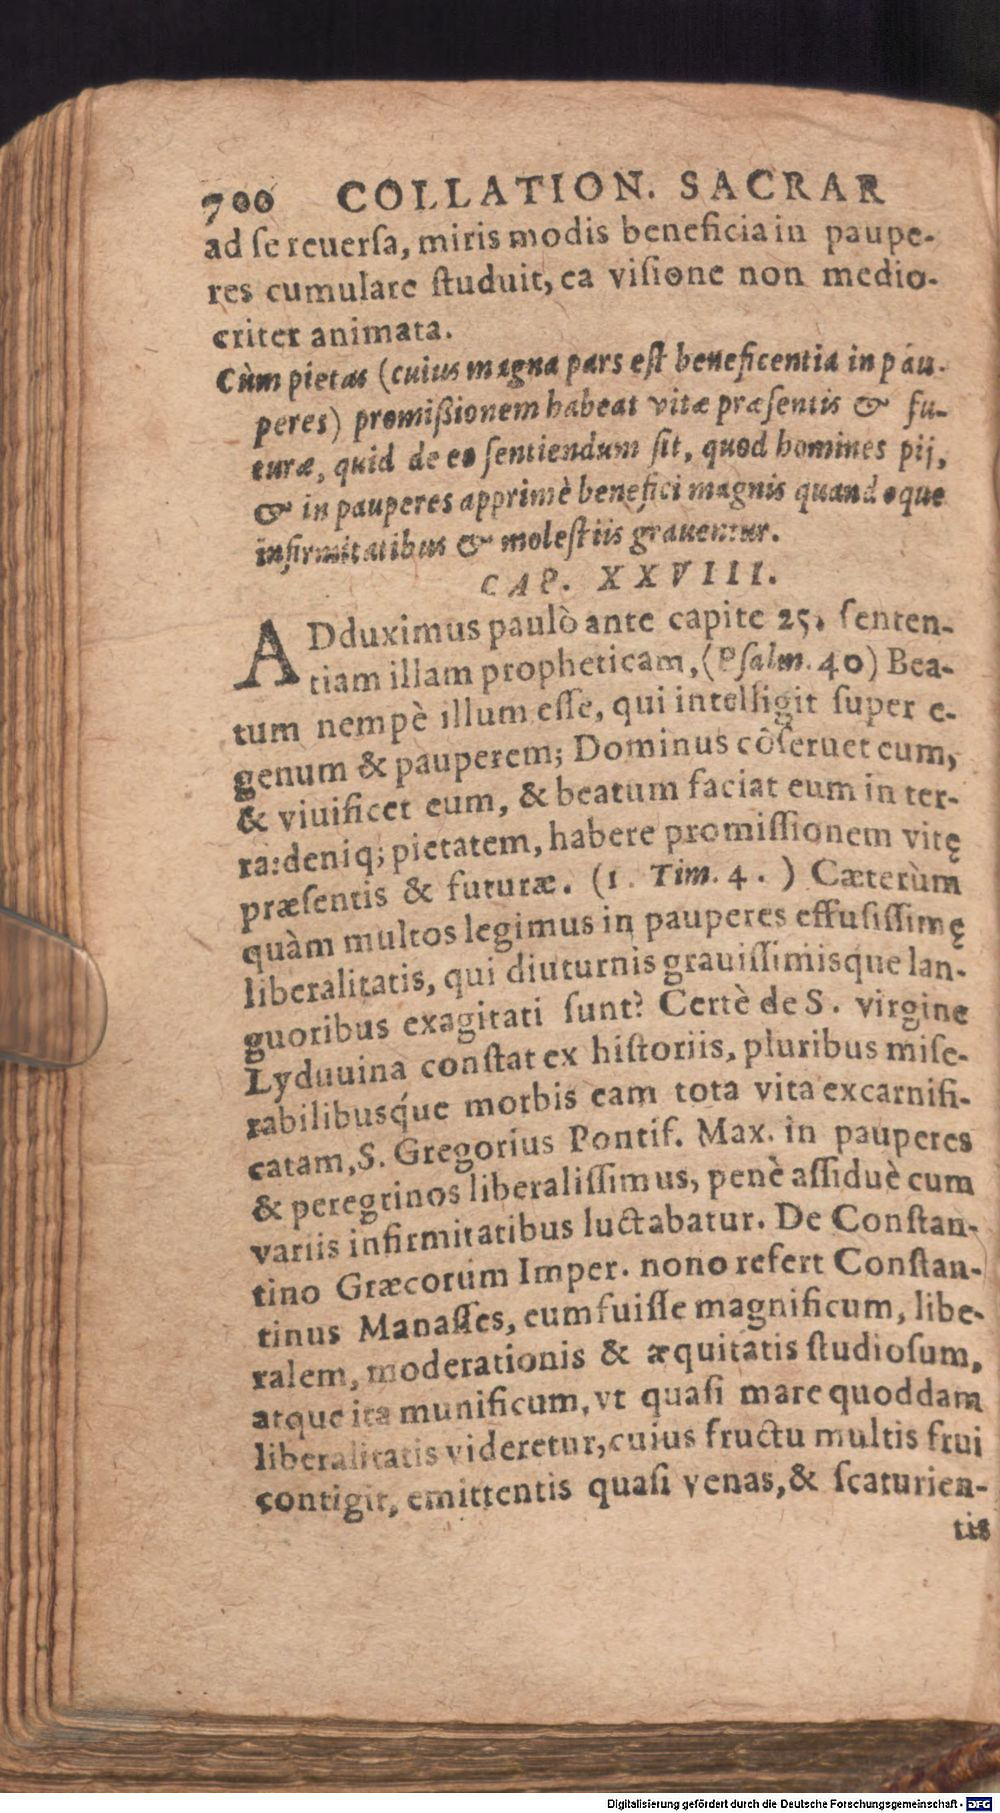 700 COLLATION. SACRAR
ad ſe reuerſa, miris modis beneficia in paupe-
res cumulare ſtuduit, ea viſione non medio-
criter animata.
Cùm pietas (cuius magna pars eſt beneficentia in páu-
peres) promiſsionem habeat vitæ præſentis & fu-
turæ, quid de eo ſentiendum ſit, quod homines pij,
& in pauperes apprimè benefici magnis quandoque
infirmitatibus & moleſtiis grauentur.
CAP. XXVIII.
ADduximus paulò ante capite 25. ſenten-
tiam illam propheticam, (Pſalm. 40) Bea-
tum nempè illum eſſe, qui intelligit ſuper e-
genum & pauperem; Dominus cõſeruet eum,
& viuificet eum, & beatum faciat eum in ter-
ra: deniq; pietatem, habere promiſſionem vitę
præſentis & futuræ. (1. Tim. 4. ) Cæterùm
quàm multos legimus in pauperes effuſiſſimę
liberalitatis, qui diuturnis grauiſſimisque lan-
guoribus exagitati ſunt? Certè de S. virgine
Lyduuina conſtat ex hiſtoriis, pluribus miſe-
rabilibusq́ue morbis eam tota vita excarnifi-
catam, S. Gregorius Pontif. Max. in pauperes
& peregrinos liberaliſſimus, penè aſſiduè cum
variis infirmitatibus luctabatur. De Conſtan-
tino Græcorum Imper. nono refert Conſtan-
tinus Manaſſes, eum fuiſſe magnificum, libe-
ralem, moderationis & æquitatis ſtudioſum,
atque ita munificum, vt quaſi mare quoddam
liberalitatis videretur, cuius fructu multis frui
contigit, emittentis quaſi venas, & ſcaturien-
tis
Digitalisierung gefördert durch die Deutsche Forschungsgemeinschaft - DFG